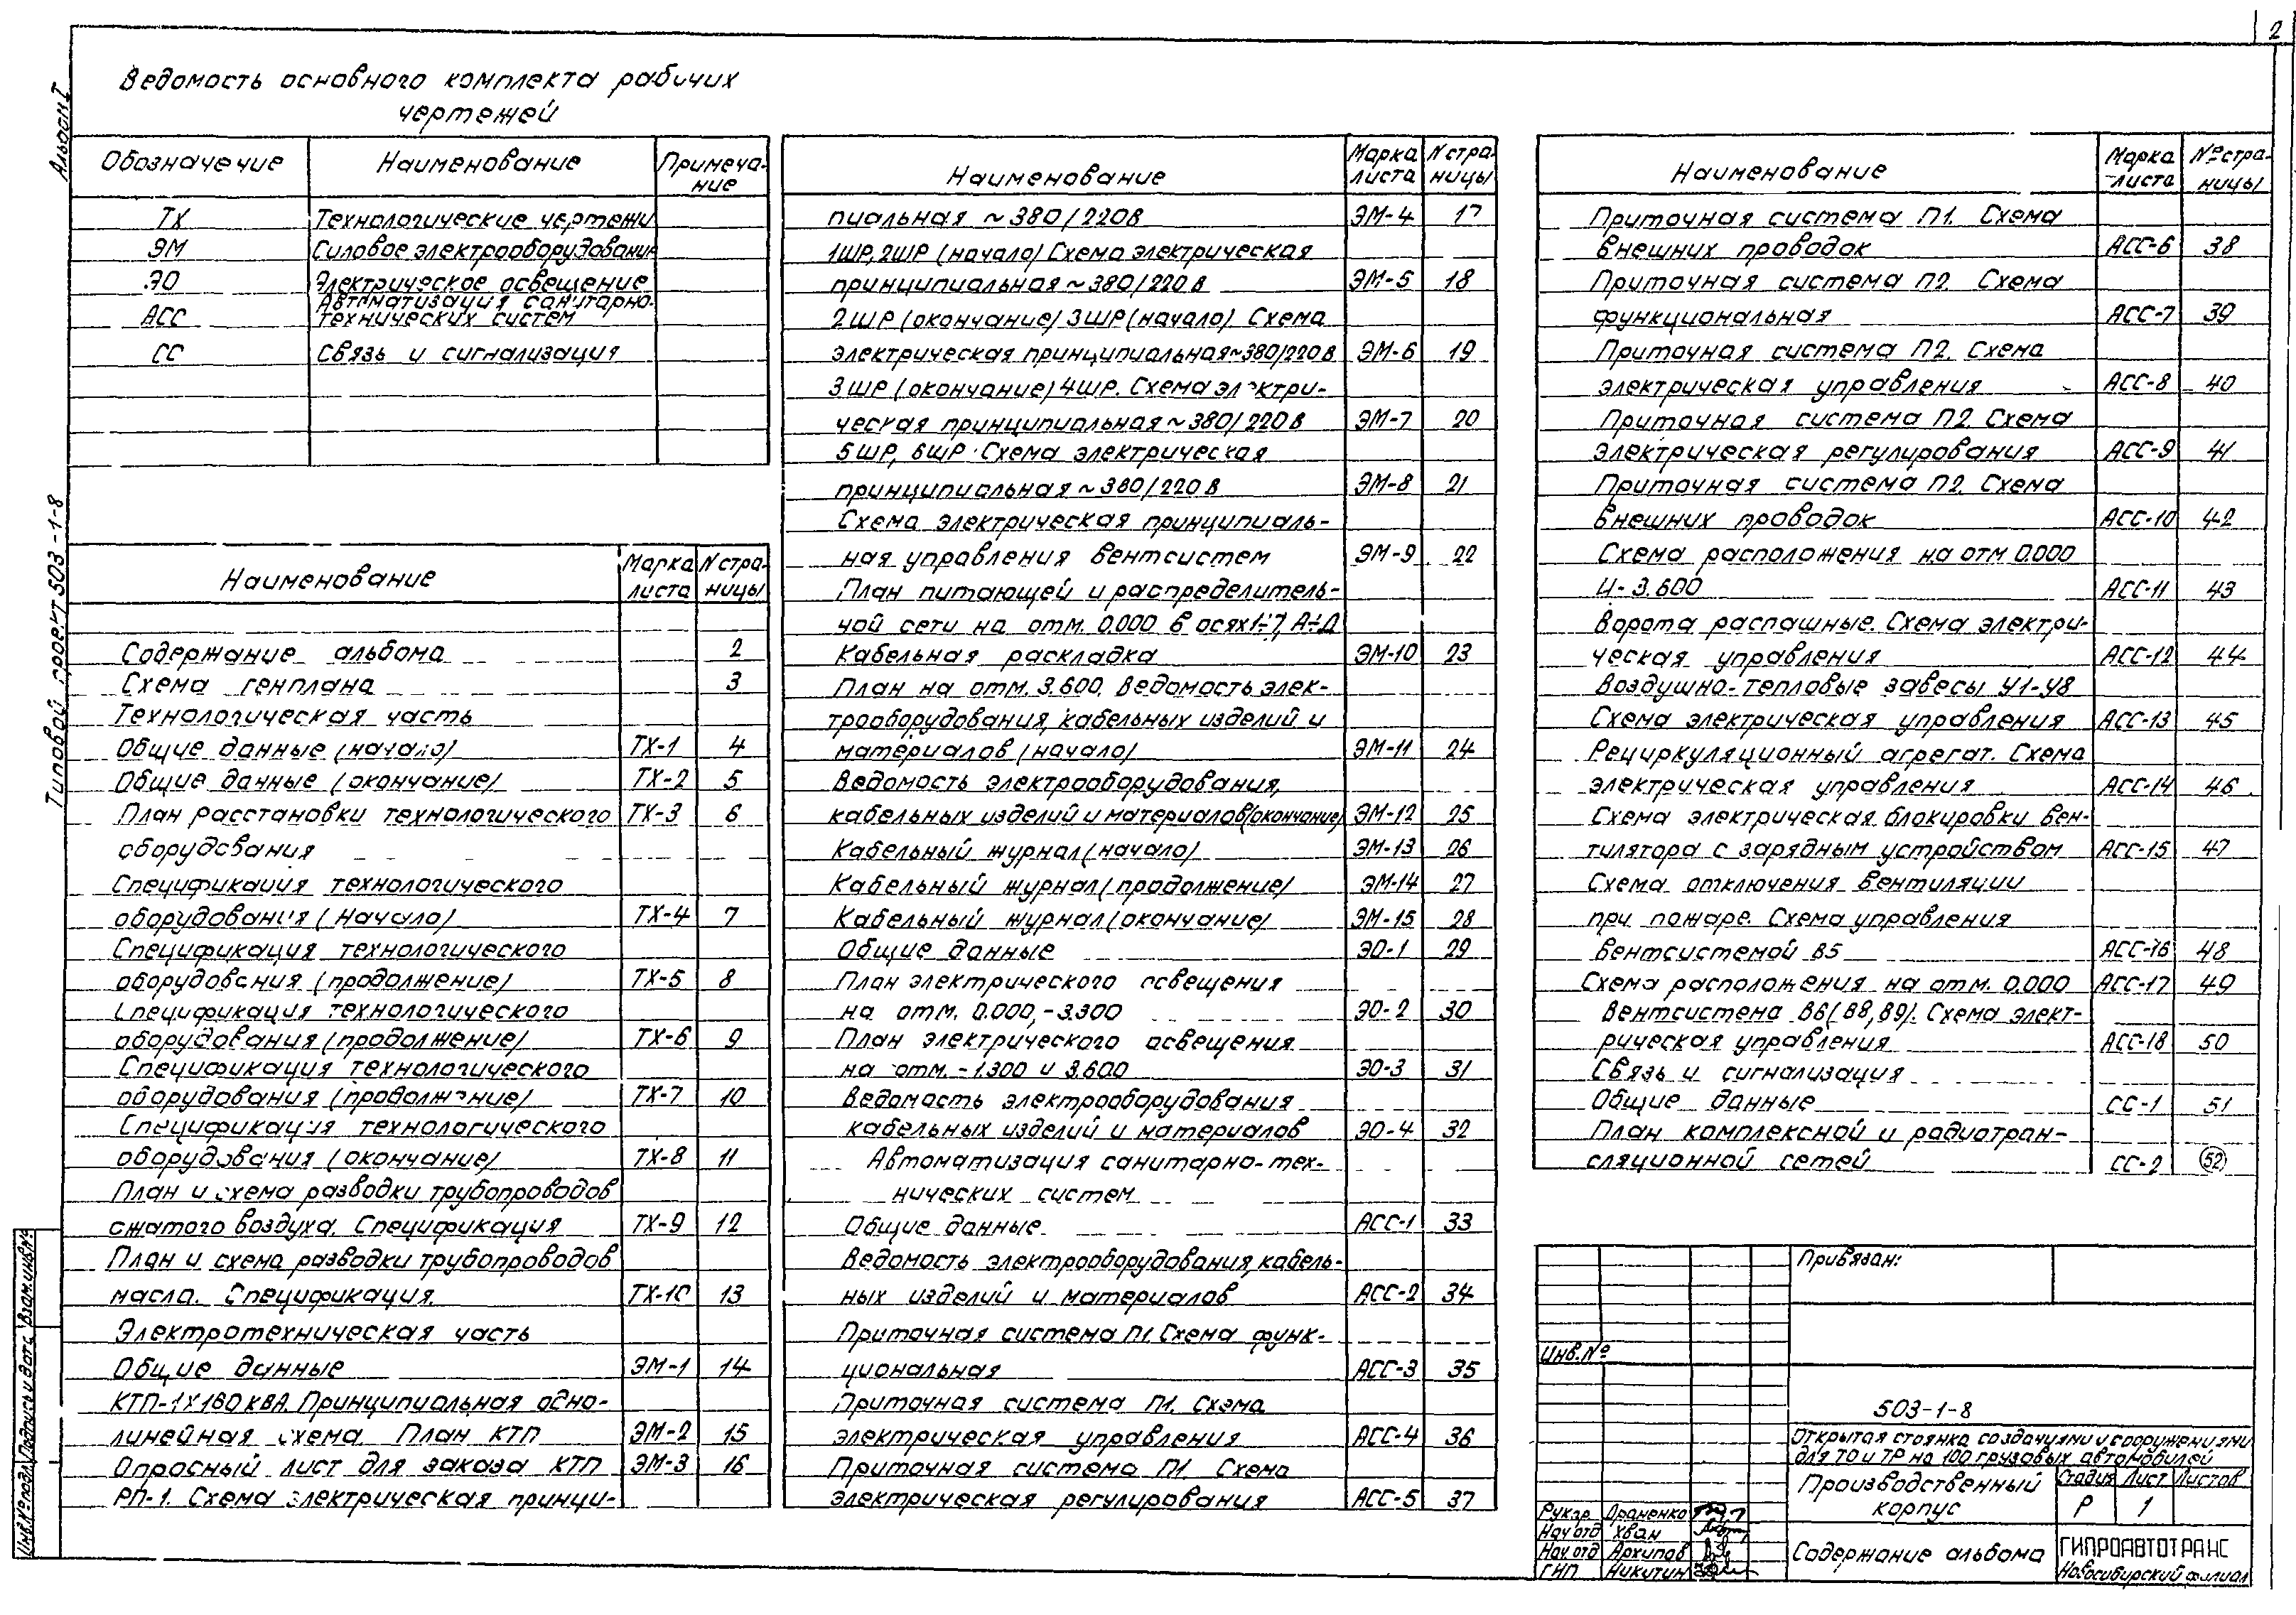 2
Альбом I
Типовой проект 503-1-8
Ведомость основного комплекта рабочих
чертежей
Обозначение Наименование Примеча-
ние
ТХ Технологические чертежи
ЭМ Силовое электрооборудование
ЭО Электрическое освещение
АСС Автоматизация санитарно-
технических систем
СС Связь и сигнализация
Наименование Марка листа N стра-
ницы
Содержание альбома 2
Схема генплана 3
Технологическая часть
Общие данные (начало) ТХ-1 4
Общие данные (окончание) ТХ-2 5
План расстановки технологического ТХ-3 6
оборудования
Спецификация технологического
оборудования (начало) ТХ-4 7
Спецификация технологического
оборудования (продолжение) ТХ-5 8
Спецификация технологического
оборудования (продолжение) ТХ-6 9
Спецификация технологического
оборудования (продолжение) ТХ-7 10
Спецификация технологического
оборудования (окончание) ТХ-8 11
План и схема разводки трубопроводов
сжатого воздуха. Спецификация ТХ-9 12
План и схема разводки трубопроводов
масла. Спецификация. ТХ-10 13
Электротехническая часть
Общие данные ЭМ-1 14
КТП-1х160 кВА. Принципиальная одно-
линейная схема. План КТП ЭМ-2 15
Опросный лист для заказа КТП ЭМ-3 16
РП-1. Схема электрическая принци-
Наименование Марка листа N стра-
ницы
пиальная ~380/220В ЭМ-4 17
1ШР, 2ШР (начало) Схема электрическая
принципиальная ~380/220В ЭМ-5 18
2ШР (окончание) 3ШР (начало) Схема
электрическая принципиальная~380/220В ЭМ-6 19
3ШР (окончание) 4ШР. Схема электри-
ческая принципиальная ~380/220В ЭМ-7 20
5ШР, 6ШР. Схема электрическая
принципиальная ~380/220В ЭМ-8 21
Схема электрическая принципиаль-
ная управления вентсистем ЭМ-9 22
План питающей и распределитель-
ной сети на отм. 0.000 в осях 1÷7, А÷Д
Кабельная раскладка ЭМ-10 23
План на отм. 3.600. Ведомость элек-
трооборудования, кабельных изделий и
материалов (начало) ЭМ-11 24
Ведомость электрооборудования,
кабельных изделий и материалов(окончание) ЭМ-12 25
Кабельный журнал (начало) ЭМ-13 26
Кабельный журнал (продолжение) ЭМ-14 27
Кабельный журнал (окончание) ЭМ-15 28
Общие данные ЭО-1 29
План электрического освещения
на отм. 0.000, -3.300 ЭО-2 30
План электрического освещения
на отм. -1.300 и 3.600 ЭО-3 31
Ведомость электрооборудования
кабельных изделий и материалов ЭО-4 32
Автоматизация санитарно-тех-
нических систем
Общие данные. АСС-1 33
Ведомость электрооборудования, кабель-
ных изделий и материалов АСС-2 34
Приточная система П1. Схема функ-
циональная АСС-3 35
Приточная система П1. Схема
электрическая управления АСС-4 36
Приточная система П1 Схема
электрическая регулирования АСС-5 37
Наименование Марка
-листа №стра-
ницы
Приточная система П1. Схема
внешних проводок АСС-6 38
Приточная система П2. Схема
функциональная АСС-7 39
Приточная система П2. Схема
электрическая управления АСС-8 40
Приточная система П2. Схема
электрическая регулирования АСС-9 41
Приточная система П2. Схема
внешних проводок АСС-10 42
Схема расположения на отм 0.000
и-3.600 АСС-11 43
Ворота распашные. Схема электри-
ческая управления АСС-12 44
Воздушно-тепловые завесы У1-У8
Схема электрическая управления АСС-13 45
Рециркуляционный агрегат. Схема
электрическая управления АСС-14 46
Схема электрическая блокировки вен-
тилятора с зарядным устройством АСС-15 47
Схема отключения вентиляции
при пожаре. Схема управления
вентсистемой В5 АСС-16 48
Схема расположения на отм. 0.000 АСС-17 49
Вентсистема В6(В8,В9). Схема элект-
рическая управления АСС-18 50
Связь и сигнализация
Общие данные СС-1 51
План комплексной и радиотран-
сляционной сетей СС-2 52
Привязан:
Инв.№
503-1-8
Открытая стоянка со зданиями и сооружениями
для ТО и ТР на 100 грузовых автомобилей
Производственный
корпус
Стадия Лист Листов
Р 1
Рук.гр. Драненко
Нач отд Хван
Нач.отд Архипов
ГИП Никитин
Содержание альбома
ГИПРОАВТОТРАНС
Новосибирский филиал
Инв.№ подл. Подпись и дата Взам.инв.№